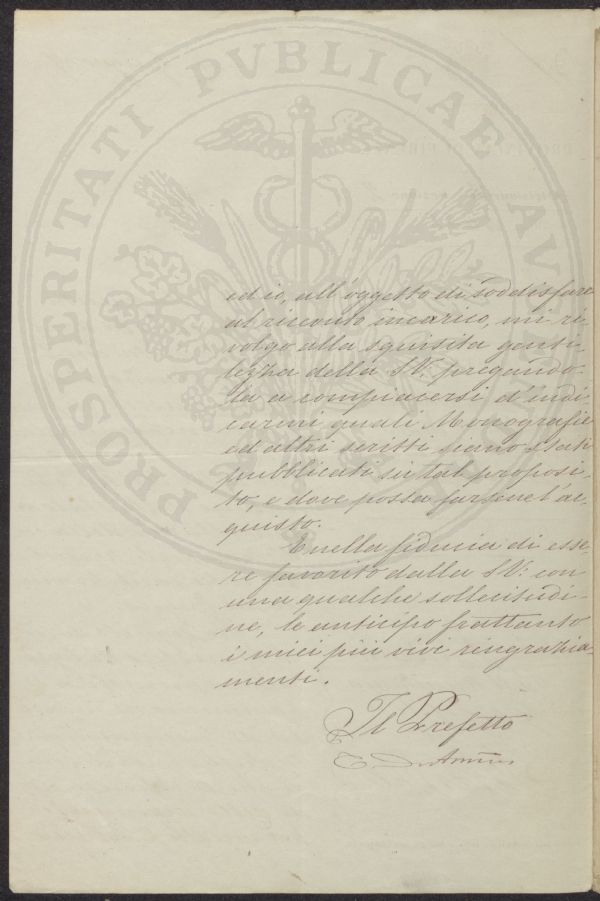 PROSPERITATI PVBLICAE AV
ed io, all'oggetto di soddisfare
al ricevuto incarico, mi ri-
volgo alla squisita genti-
lezza della S.V. pregando-
la a compiacersi d'indi-
carmi quali Monografie
ed altri scritti siano stati
pubblicati in tal proposi-
to, e dove possa farsene l'ac-
quisto.
E nella fiducia di esse-
re favorito dalla S.V. con
una qualche sollecitudi-
ne, le anticipo frattanto
i miei più vivi ringrazia-
menti.
Il Prefetto